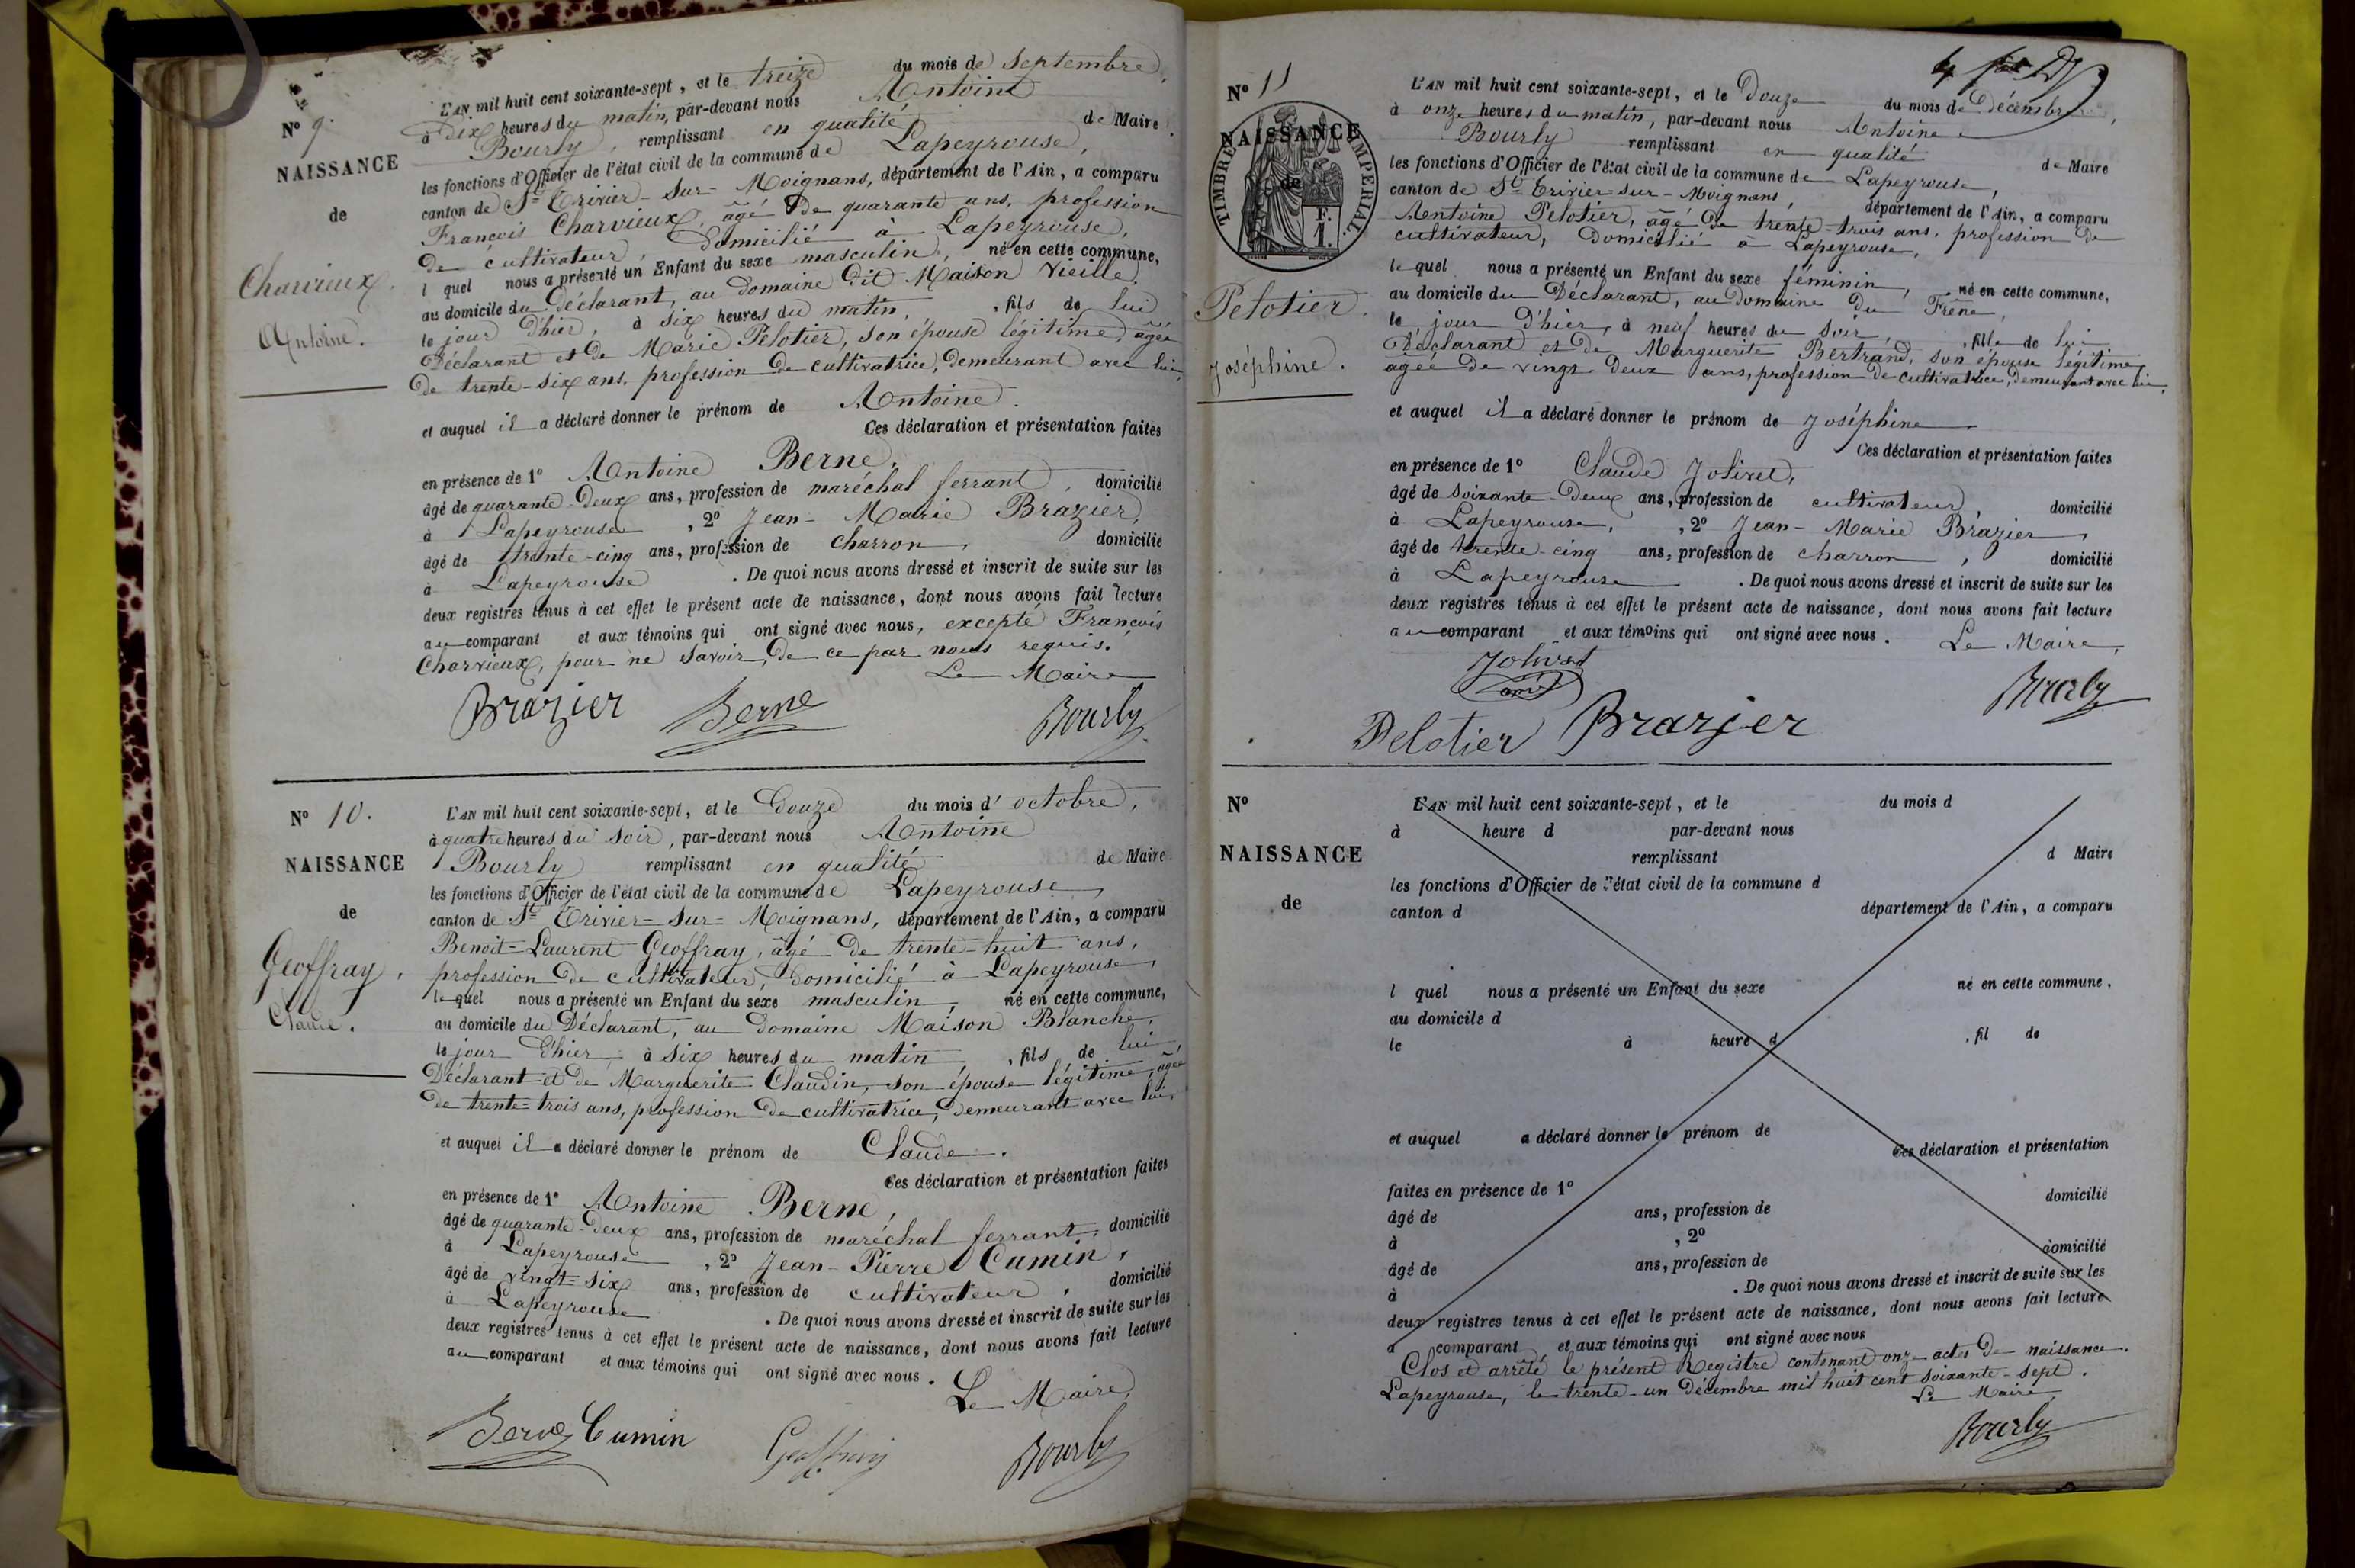 N° 9.
NAISSANCE
de
Charvieux.
Antoine.
L'AN mil huit cent soixante-sept, et le treize du mois de Septembre,
à dix heures du matin, par-devant nous Antoine
Bourly, remplissant en qualité de Maire
les fonctions d'Officier de l'état civil de la commune de Lapeyrouse,
canton de St Trivier-sur-Moignans, département de l'Ain, a comparu
François Charvieux, âgé de quarante ans, profession
de cultivateur, domicilié à Lapeyrouse,
l quel nous a présenté un Enfant du sexe masculin, né en cette commune,
au domicile du Déclarant, au domaine dit Maison Vieille,
le jour d'hier, à six heures du matin, fils de lui
Déclarant et de Marie Pelotier, son épouse légitime, âgée
de trente-six ans, profession de cultivatrice, demeurant avec lui,
et auquel il a déclaré donner le prénom de Antoine.
Ces déclaration et présentation faites
en présence de 1° Antoine Berne,
âgé de quarante-deux ans, profession de maréchal ferrant, domicilié
à Lapeyrouse, 2° Jean-Marie Brazier,
âgé de trente-cinq ans, profession de charron, domicilié
à Lapeyrouse. De quoi nous avons dressé et inscrit de suite sur les
deux registres tenus à cet effet le présent acte de naissance, dont nous avons fait lecture
au comparant et aux témoins qui ont signé avec nous, excepté François
Charvieux, pour ne savoir, de ce par nous requis.
Le Maire
Brazier Berne Bourly
N° 10.
NAISSANCE
de
Geoffray,
Claude.
L'AN mil huit cent soixante-sept, et le douze du mois d'octobre,
à quatre heures du soir, par-devant nous Antoine
Bourly remplissant en qualité de Maire
les fonctions d'Officier de l'état civil de la commune de Lapeyrouse,
canton de St Trivier-sur-Moignans, département de l'Ain, a comparu
Benoit-Laurent Geoffray, âgé de trente-huit ans,
profession de cultivateur, domicilié à Lapeyrouse,
lequel nous a présenté un Enfant du sexe masculin, né en cette commune,
au domicile du Déclarant, au domaine Maison Blanche,
le jour d'hier à six heures du matin, fils de lui
Déclarant et de Marguerite Claudin, son épouse légitime, âgée
de trente-trois ans, profession de cultivatrice, demeurant avec lui,
et auquel il a déclaré donner le prénom de Claude.
Ces déclaration et présentation faites
en présence de 1° Antoine Berne,
âgé de quarante-deux ans, profession de maréchal ferrant, domicilié
à Lapeyrouse, 2° Jean-Pierre Cumin,
âgé de vingt-six ans, profession de cultivateur, domicilié
à Lapeyrouse. De quoi nous avons dressé et inscrit de suite sur les
deux registres tenus à cet effet le présent acte de naissance, dont nous avons fait lecture
au comparant et aux témoins qui ont signé avec nous. Le Maire,
Berne Cumin Geoffray Bourly
N° 11
NAISSANCE
de
TIMBRE IMPERIAL.
1 F.
Pelotier.
Joséphine.
L'AN mil huit cent soixante-sept, et le Douze du mois de Décembre,
à onze heures du matin, par-devant nous Antoine
Bourly remplissant en qualité de Maire
les fonctions d'Officier de l'état civil de la commune de Lapeyrouse,
canton de St Trivier-sur-Moignans, département de l'Ain, a comparu
Antoine Pelotier, âgé de trente-trois ans, profession de
cultivateur, domicilié à Lapeyrouse,
le quel nous a présenté un Enfant du sexe féminin, né en cette commune,
au domicile du Déclarant, au domaine du Frêne,
le jour d'hier, à neuf heures du soir, fille de lui
Déclarant et de Marguerite Bertrand, son épouse légitime,
âgée de vingt-deux ans, profession de cultivatrice, demeurant avec lui,
et auquel il a déclaré donner le prénom de Joséphine.
Ces déclaration et présentation faites
en présence de 1° Claude Jolivet,
âgé de soixante-deux ans, profession de cultivateur, domicilié
à Lapeyrouse, 2° Jean-Marie Brazier,
âgé de trente-cinq ans, profession de charron, domicilié
à Lapeyrouse. De quoi nous avons dressé et inscrit de suite sur les
deux registres tenus à cet effet le présent acte de naissance, dont nous avons fait lecture
au comparant et aux témoins qui ont signé avec nous. Le Maire,
Jolivet
Bourly
Pelotier Brazier
N°
NAISSANCE
de
L'AN mil huit cent soixante-sept, et le du mois d
à heure d par-devant nous
remplissant d Maire
les fonctions d'Officier de l'état civil de la commune d
canton d département de l'Ain, a comparu
l quel nous a présenté un Enfant du sexe né en cette commune,
au domicile d
le à heure d, fil de
et auquel a déclaré donner le prénom de
Ces déclaration et présentation
faites en présence de 1° domicilié
âgé de ans, profession de
à, 2°
âgé de ans, profession de domicilié
à. De quoi nous avons dressé et inscrit de suite sur les
deux registres tenus à cet effet le présent acte de naissance, dont nous avons fait lecture
a comparant et aux témoins qui ont signé avec nous
Clos et arrêté le présent Registre contenant onze actes de naissance.
Lapeyrouse, le trente-un Décembre mil huit cent soixante-sept.
Le Maire
Bourly